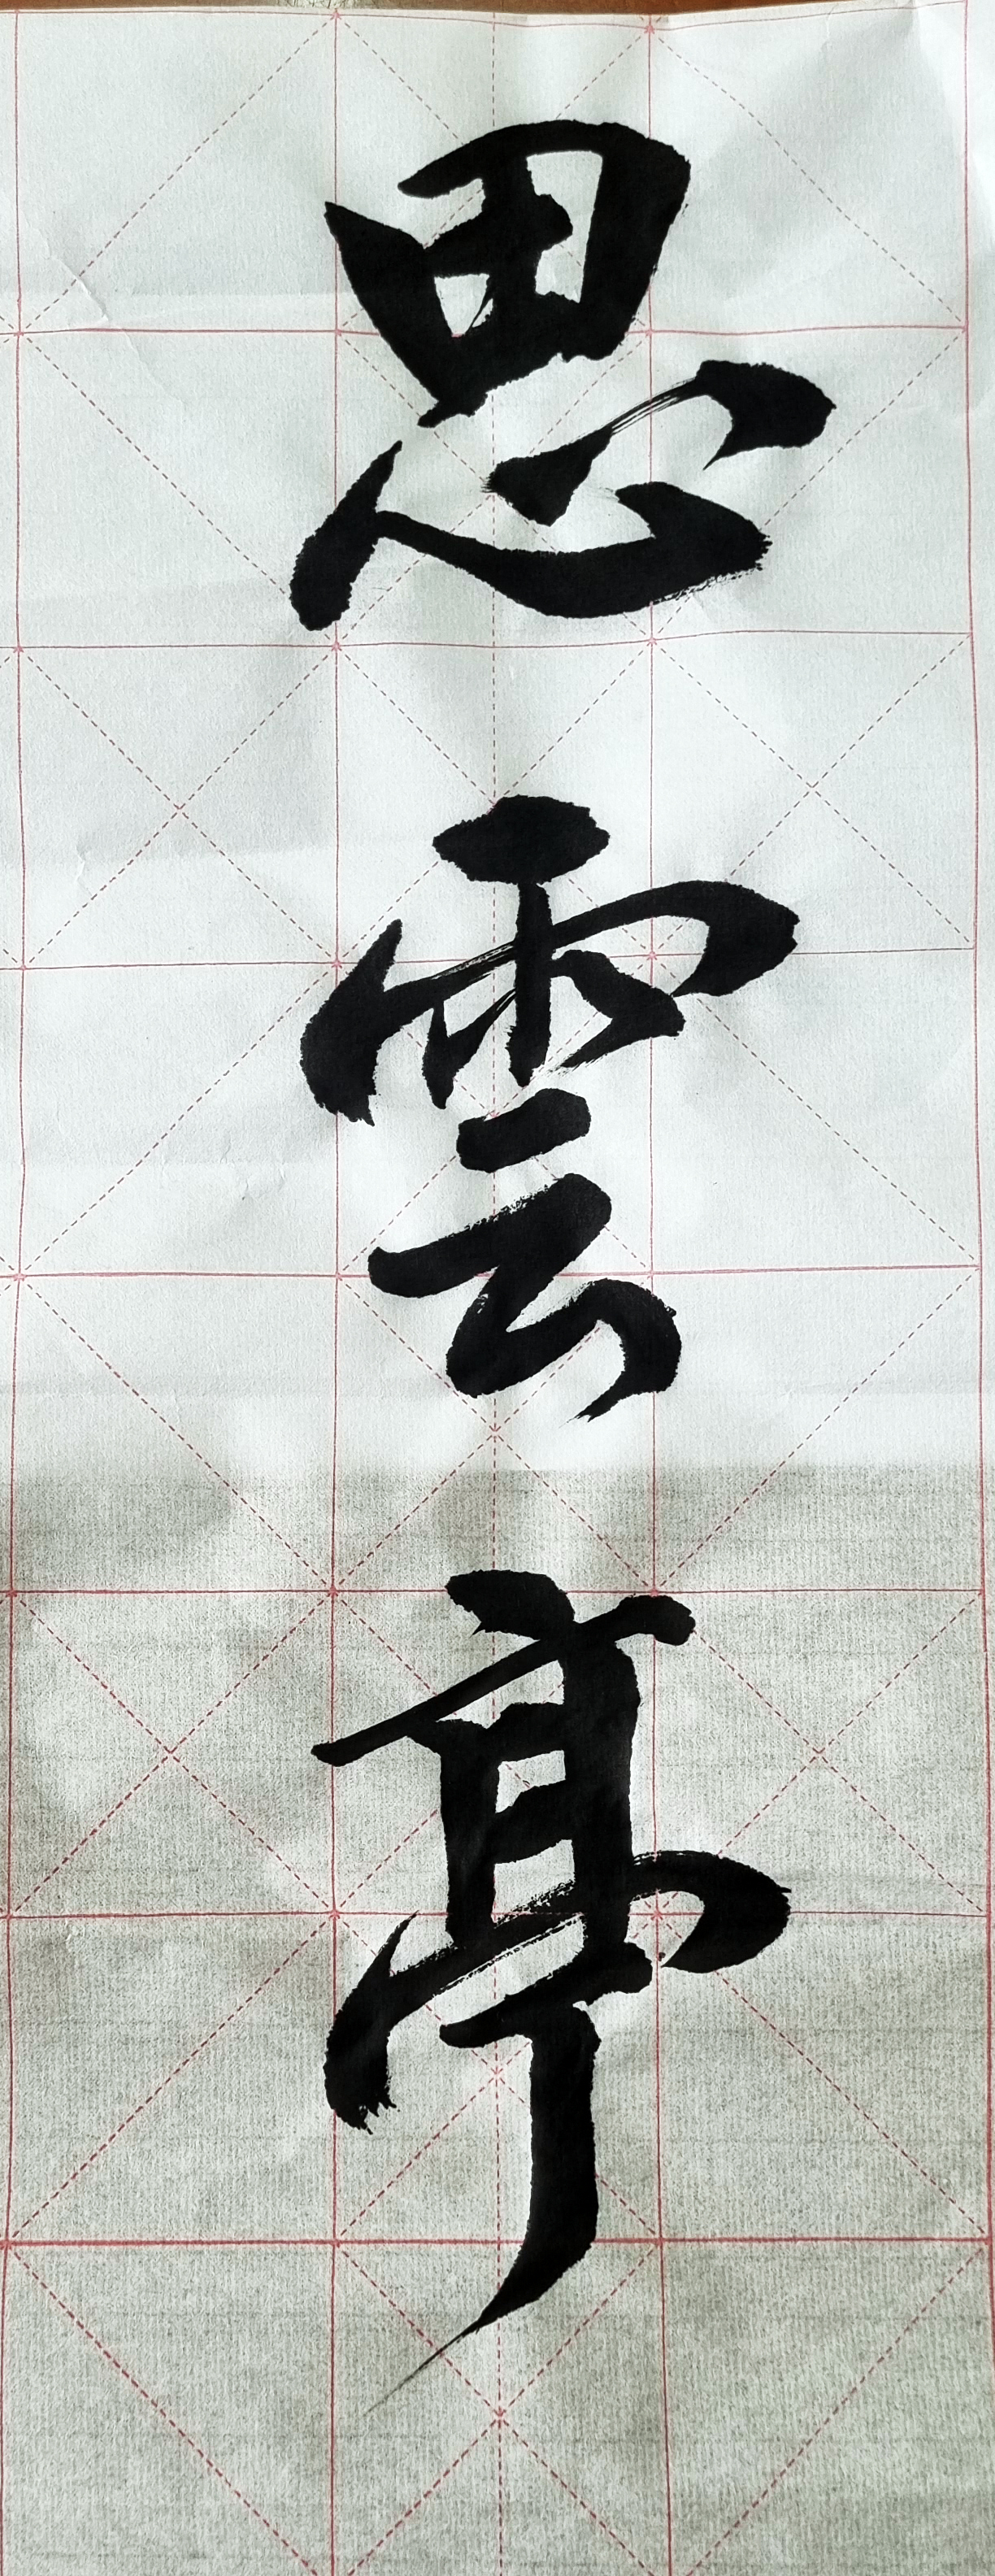 思雲亭